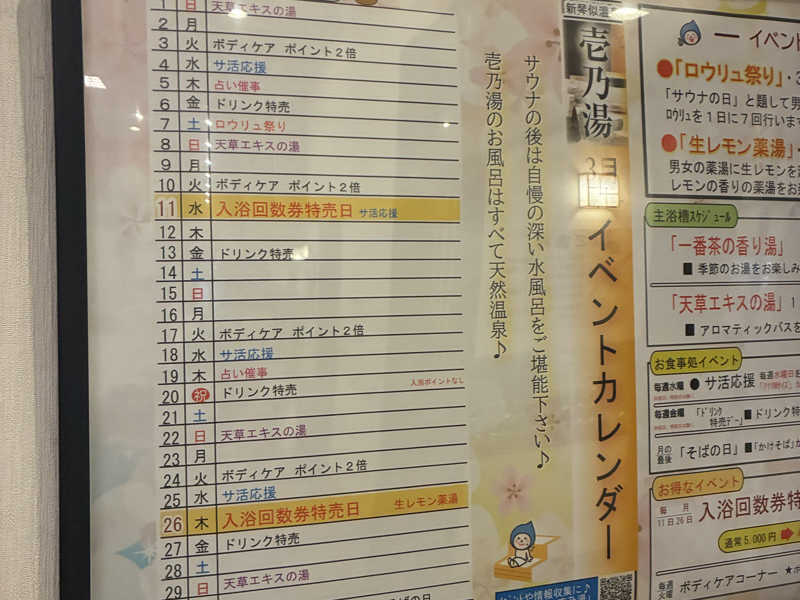 1 日 天草エキスの湯
2 月
3 火 ボディケア ポイント2倍
4 水 サ活応援
5 木 占い催事
6 金 ドリンク特売
7 土 ロウリュ祭り
8 日 天草エキスの湯
9 月
10 火 ボディケア ポイント2倍
11 水 入浴回数券特売日 サ活応援
12 木
13 金 ドリンク特売
14 土
15 日
16 月
17 火 ボディケア ポイント2倍
18 水 サ活応援
19 木 占い催事
20 祝 ドリンク特売 入浴ポイントなし
21 土
22 日 天草エキスの湯
23 月
24 火 ボディケア ポイント2倍
25 水 サ活応援
26 木 入浴回数券特売日 生レモン薬湯
27 金 ドリンク特売
28 土
29 日 天草エキスの湯
サウナの後は自慢の深い水風呂をご堪能下さい♪
壱乃湯のお風呂はすべて天然温泉♪
新琴似温
壱乃湯
3月
イベントカレンダー
ントや情報収集に♪
一 イベン
●「ロウリュ祭り」・3
「サウナの日」と題して男
ロウリュを1日に7回行いま
●「生レモン薬湯」・
男女の薬湯に生レモンを
レモンの香りの薬湯をお
主浴槽スケジュール
「一番茶の香り湯」
■ 季節のお湯をお楽しみ
「天草エキスの湯」1
■ アロマティックバスを
お食事処イベント
毎週水曜 ● サ活応援 毎週水曜日
毎週金曜 「ドリンク特売デー」■ドリンク特
月の最後 「そばの日」■「かけそば」が
お得なイベント
毎 月
11日26日 入浴回数券特
通常5,000円
毎週火曜 ボディケアコーナー ★ボ